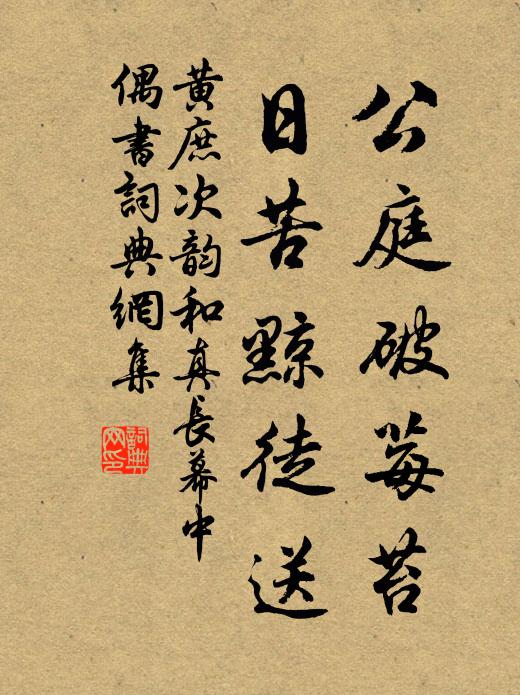 公庭破莓苔
日苦黥徒送
黃庶次韵和真長幕中
偶書詞典網集
詞典
网印